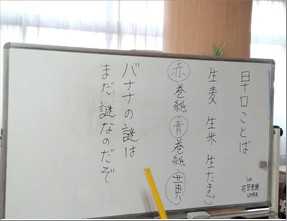 早口ことば
生麦 生米 生たまご
赤巻紙 青巻紙 黄
バナナの謎は
まだ謎なのだぞ